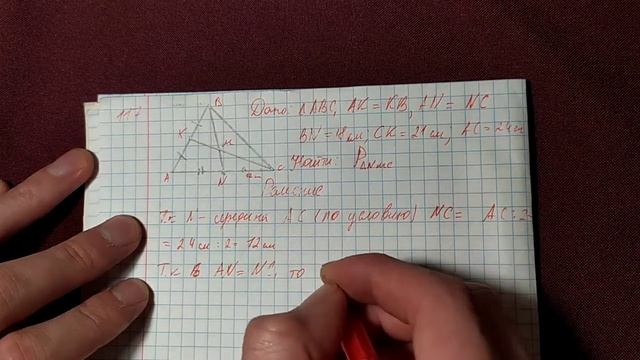 117
B
K
M
A
N
C
Дано: △ABC, AK = KB, AN = NC
BN = см, CK = 21 см, AC = 24 см
Найти: P△NMC
Решение
Т.к N - середина AC (по условию) NC = AC : 2 =
= 24 см : 2 = 12 см
Т.к В AN = N , то